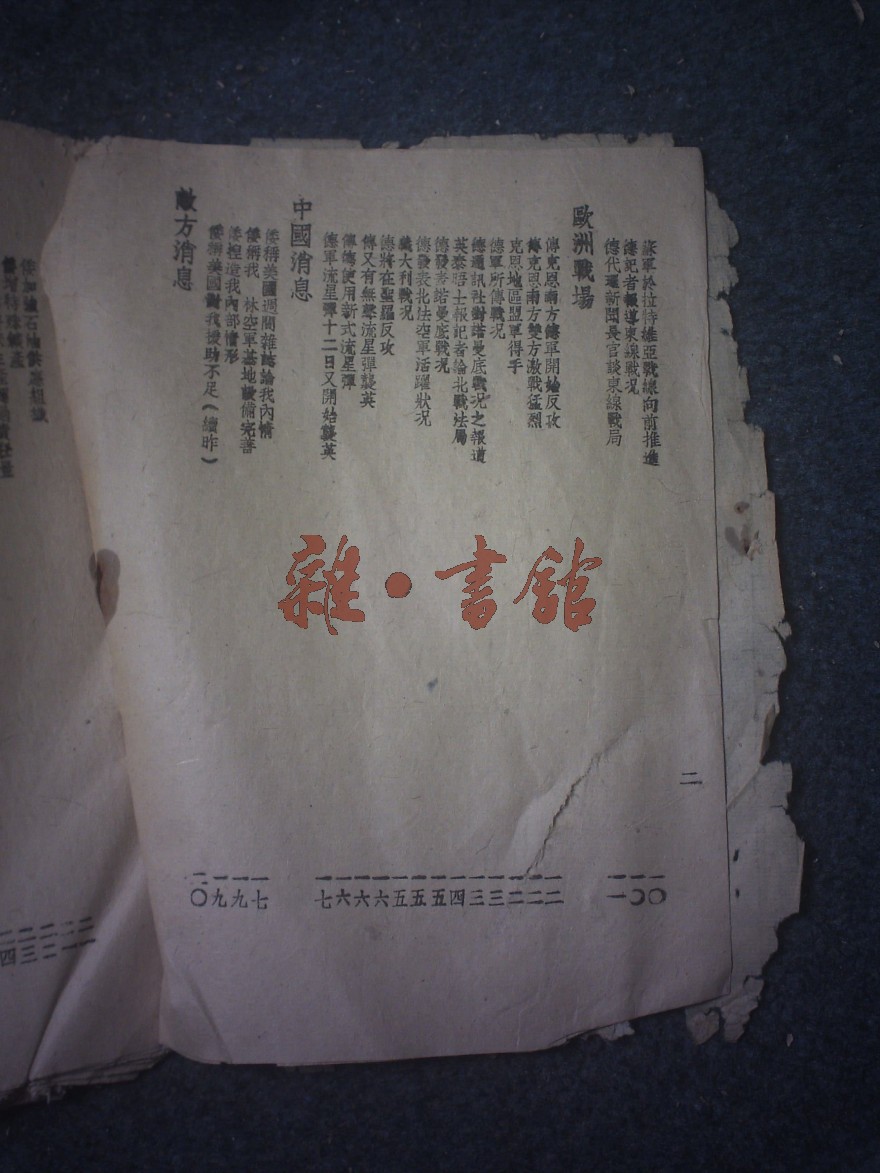 二
蘇軍於拉特維亞戰線向前推進 一〇
德記者報導東線戰况 一〇
德代理新聞長官談東線戰局 一一
歐洲戰場
傳克恩南方德軍開始反攻 一二
傳克恩南方雙方激戰猛烈 一二
克恩地區盟軍得手 一二
德軍所傳戰况 一三
德通訊社對諾曼底戰况之報道 一三
英泰晤士報記者論北戰法屬 一四
德發表諾曼底戰况 一五
德發表北法空軍活躍狀况 一五
義大利戰况 一五
德將在聖羅反攻 一六
傳又有無聲流星彈襲英 一六
傳德使用新式流星彈 一六
德軍流星彈十二日又開始襲英 一七
中國消息
倭稱美國週間雜誌論我內情 一七
倭稱我 林空軍基地設備完善 一九
倭捏造我內部情形 一九
倭稱美國對我援助不足(續昨) 二〇
敵方消息
雜·書館